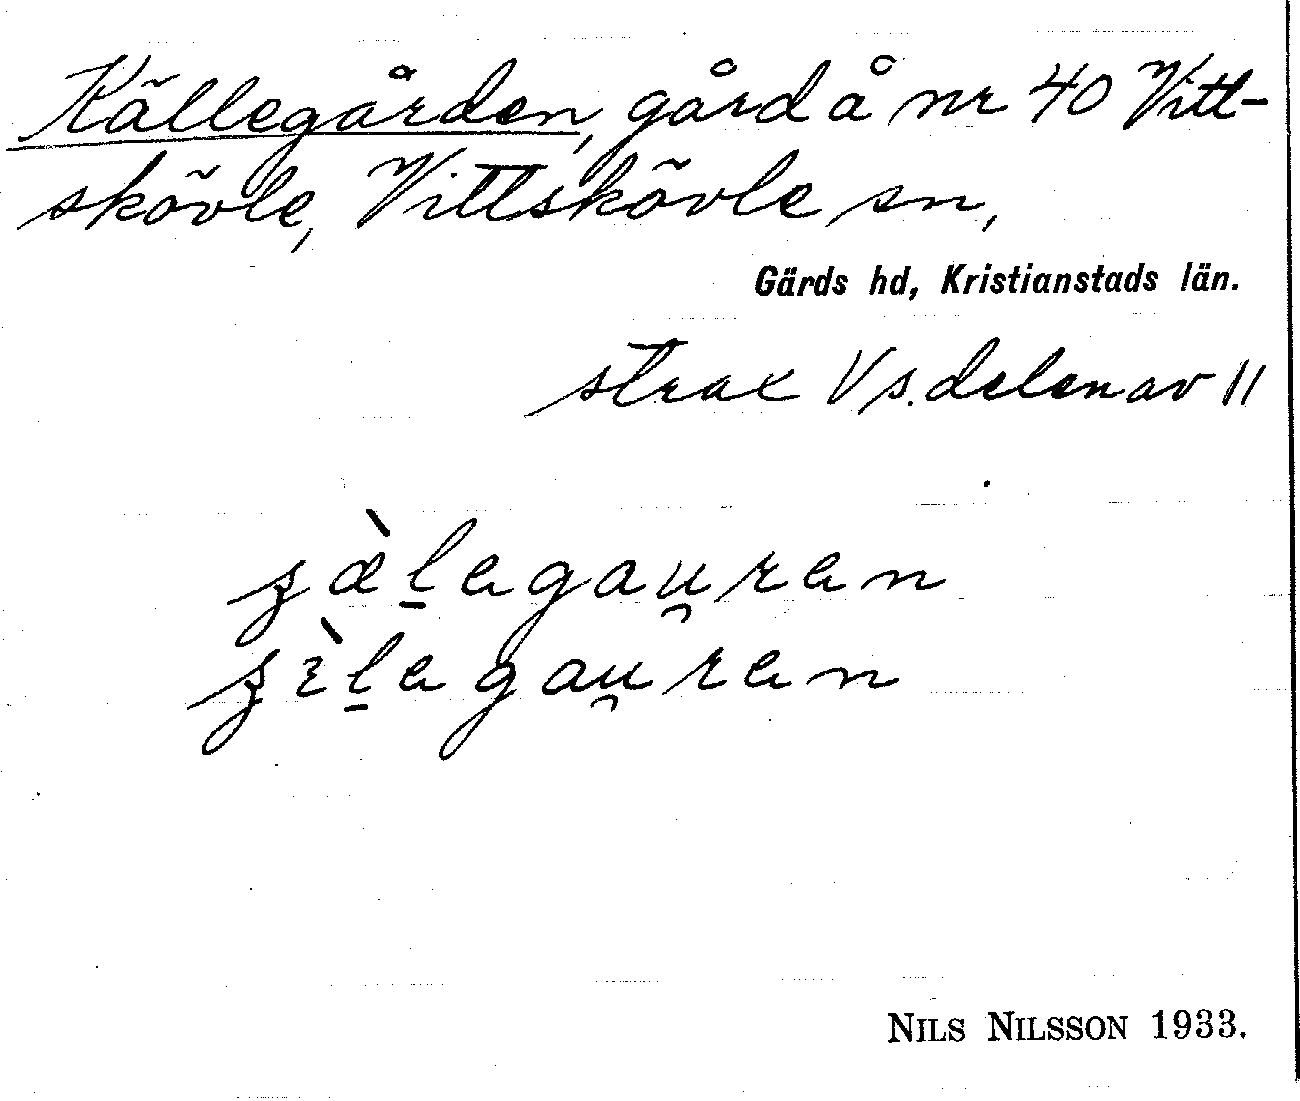 Källegården, gård å nr 40 Vitt-
skövle, Vittskövle sn,
Gärds hd, Kristianstads län.
strax V s. delen av 11
ʒæ̀l̠agau̯ran
ʒɛ̀l̠agau̯ran
NILS NILSSON 1933.